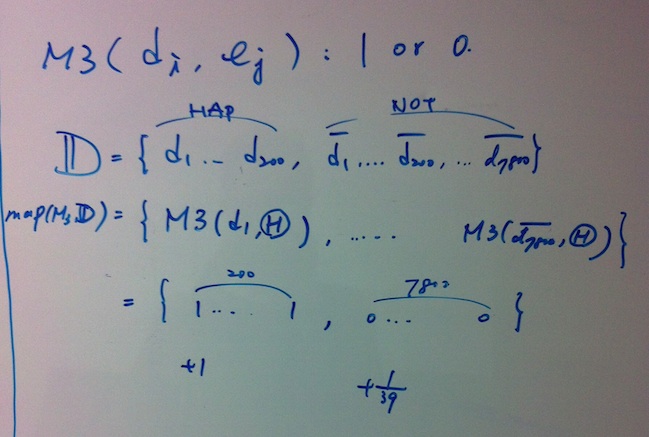 M3(di, ej) : 1 or 0.
HAP NOT
𝔻 = { d1 .. d200, d̅1 .... d̅200, ... d̅7800}
map(M3 𝔻) = { M3(d1, Ⓗ), ..... M3(d̅7800, Ⓗ)}
200 7800
= { 1.... 1, 0... 0 }
+1 +1/39